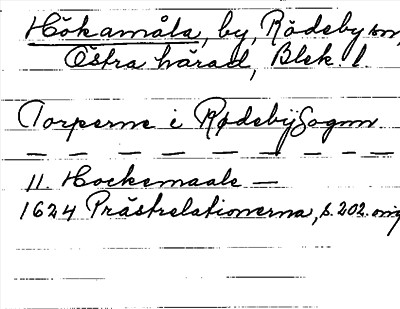 Hökamåla, by, Rödeby sn,
Östra härad, Blek. l.
Torperne i RødebijSognn
— — — — — — — — —
11. Hockemaale —
1624 Prästrelationerna, s. 202. orig